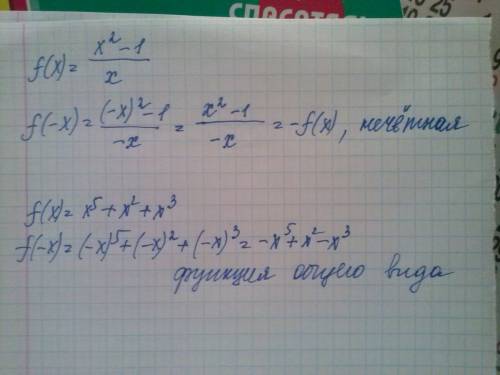 способ
25
f(x) = (x² - 1)/x
f(-x) = ((-x)² - 1)/(-x) = (x² - 1)/(-x) = -f(x), нечётная
f(x) = x⁵ + x² + x³
f(-x) = (-x)⁵ + (-x)² + (-x)³ = -x⁵ + x² - x³
функция общего вида